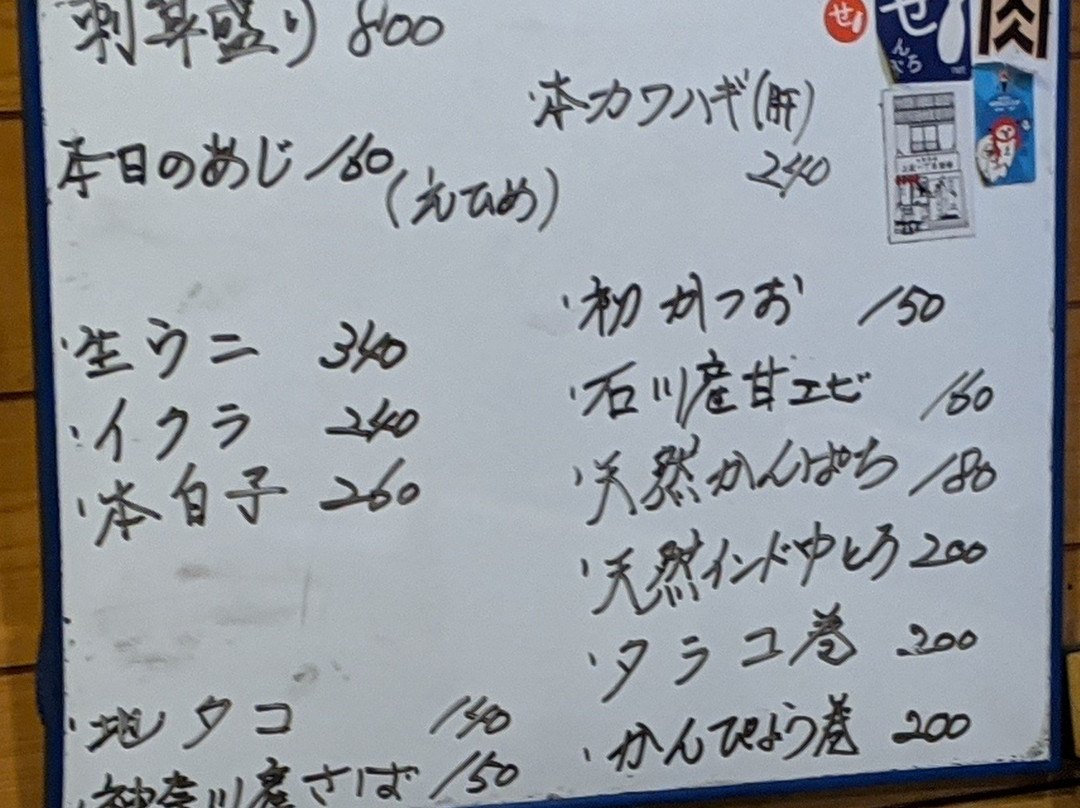 刺身盛り 800
本日のあじ 160
(えひめ)
・生ウニ 340
・イクラ 240
・本白子 260
・地タコ 140
・神奈川産さば 150
・本カワハギ(肝)
240
・初かつお 150
・石川産甘エビ 160
・天然かんぱち 180
・天然インド中とろ 200
・タラコ巻 200
・かんぴょう巻 200
せ
せんべろ
肉